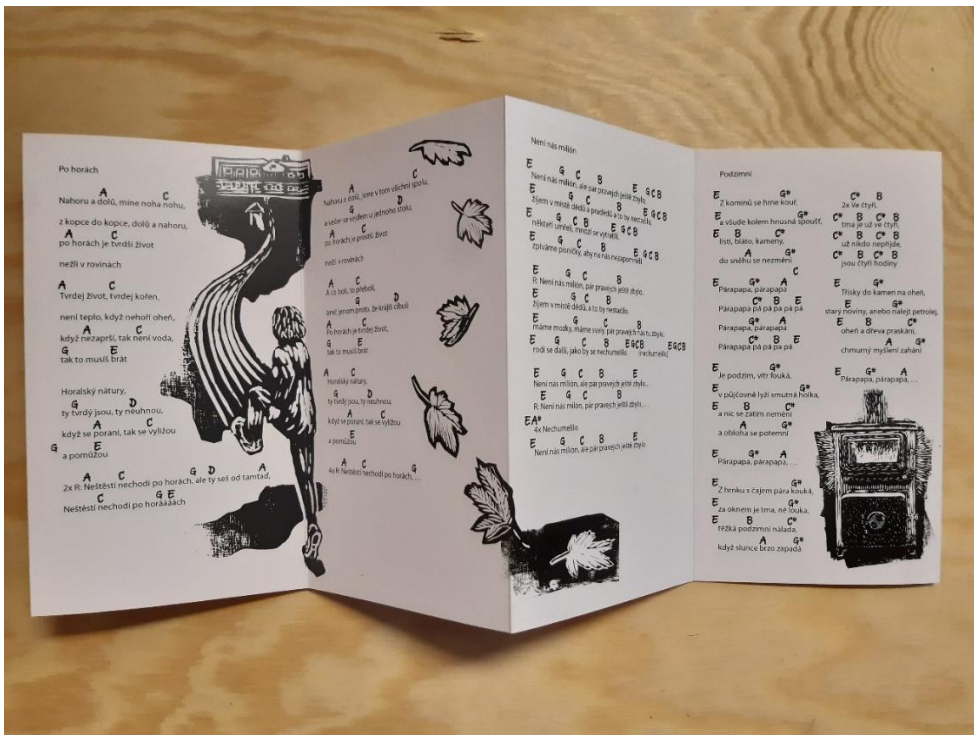 Po horách
A C
Nahoru a dolů, mine noha nohu,
z kopce do kopce, dolů a nahoru,
A C
po horách je tvrdší život
nežli v rovinách
A C
Tvrdej život, tvrdej kořen,
G D
není teplo, když nehoří oheň,
A C
když nezaprší, tak není voda,
G E
tak to musíš brát
Horalský nátury,
G D
ty tvrdý jsou, ty neuhnou,
A C
když se poraní, tak se vylížou
G E
a pomůžou
A C G D A
2x R: Neštěstí nechodí po horách, ale ty seš od tamtad,
C G E
Neštěstí nechodí po horáááách
A C
Nahoru a dolů, sme v tom všichni spolu,
G D
a večer se sejdem u jednoho stolu,
A C
po horách je prostší život
nežli v rovinách
A C
A co bolí, to přebolí,
G D
brnč jenom proto, že krájíš cibuli
A C
Po horách je tvrdej život,
G E
tak to musíš brát
A C
Horalský nátury,
G D
ty tvrdý jsou, ty neuhnou,
A C
když se poraní, tak se vylížou
E
a pomůžou
A C G
4x R: Neštěstí nechodí po horách, . . .
Není nás milión
E G C B E G C B
Není nás milión, ale pár pravejch ještě zbylo,
E G C B E G C B
žijem v místě dědů a pradědů a to by nestačilo,
E G C B E G C B
někteří umřeli, mnozí se vytratili,
E G C B E G C B
zpíváme písničky, aby na nás nezapomněli
E G C B
R: Není nás milión, ale pár pravejch ještě zbylo,
E G C B
žijem v místě dědů, a to by nestačilo,
E G C B
máme mozky, máme svaly, pár pravejch nás tu zbylo,
E G C B E G C B E G C B
rodí se další, jako by se nechumelilo (nechumelilo)
E G C B E
Není nás milión, ale pár pravejch ještě zbylo...
E G C B E
R: Není nás milión, ale pár pravejch ještě zbylo, . . .
E A#
4x Nechumelilo
E G C B E
Není nás milión, ale pár pravejch ještě zbylo.
Podzimní
E G#
Z komínů se hrne kouř,
E G#
a všude kolem hnusná spoušť,
E B C#
listí, bláto, kameny,
A G#
do sněhu se nezmění
E G# A C
Párapapa, párapapa
C# B E
Párapapa pá pá pá pá pá
G# A
Párapapa, párapapa
C# B E
Párapapa pá pá pa pá
E G#
Je podzim, vítr fouká,
E G#
v půjčovně lyží smutná holka,
E B C#
a nic se zatím nemění
A G#
a obloha se potemní
E G# A
Párapapa, párapapa, . . .
E G#
Z hrnku s čajem pára kouká,
E G#
za oknem je tma, né louka,
E B C#
těžká podzimní nálada,
A G#
když slunce brzo zapadá
C# B
2x Ve čtyři,
C# B C# B
tma je už ve čtyři,
C# B C# B
už nikdo nepřijde,
C# B C# B
jsou čtyři hodiny
E G#
Třísky do kamen na oheň,
E G#
starý noviny, anebo nalejt petrolej,
E B C#
oheň a dřeva praskání,
A G#
chmurný myšlení zahání
E G# A
Párapapa, párapapa, . . .